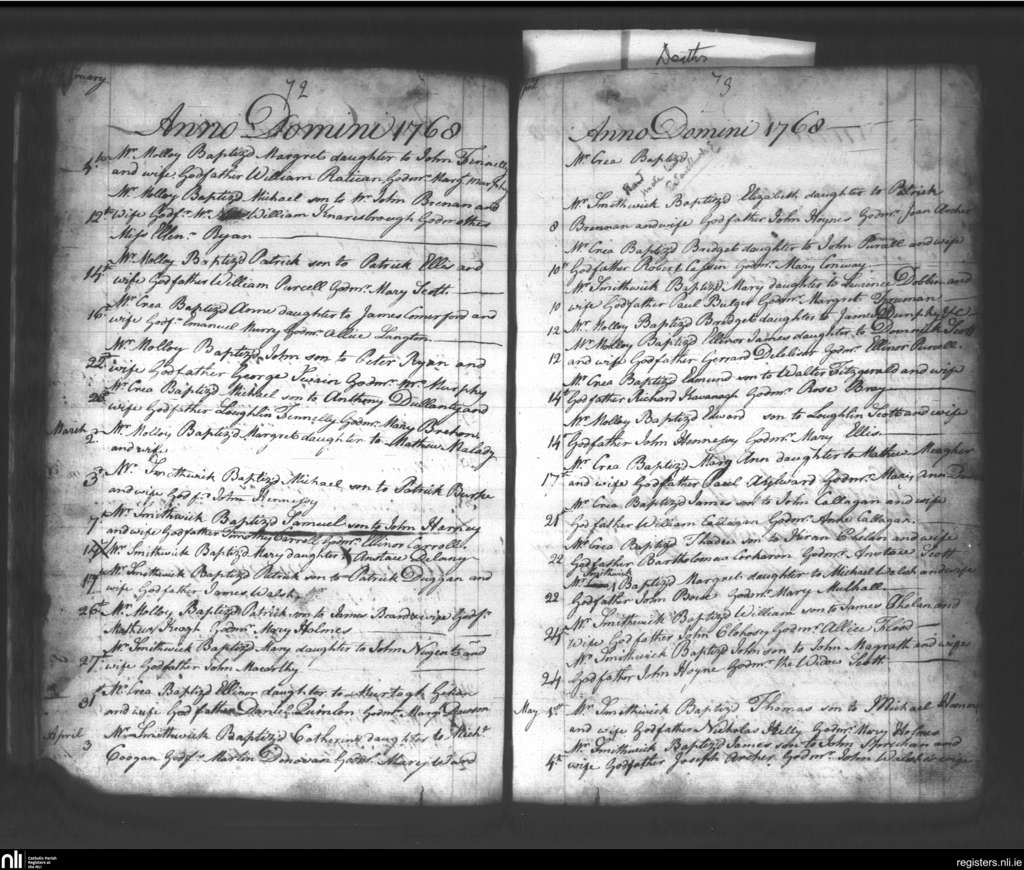 Deaths
72
Anno Domini 1768
4th Mr. Molloy Baptizd Margret daughter to John
and wife Godfather William Godmr. Mary Murphy
Mr. Molloy Baptizd Michael son to Wm. John Brenan and
12th Wife Godfr. Wm. William Knaresbrough Godmother
Miss Ellenr. Ryan
Mr. Molloy Baptizd Patrick son to Patrick Ellis and
14th wife Godfather William Purcell Godmr. Mary Scott
Mr. Crea Baptizd Anne daughter to James Comerford and
16th wife Godfr. Emanuel Murry Godmr. Allice Langton
Mr. Molloy Baptizd John son to Peter Ryan and
22d wife Godfather George Swain Godmr. Mrs. Murphy
28th Mr. Crea Baptizd Michael son to Anthony Dullanty and
wife Godfather Loughlin Fennelly Godmr. Mary Brehon
March 2d Mr. Molloy Baptizd Margret daughter to Mathew Malady
and wife
3d Mr. Smithwick Baptizd Michael son to Patrick Burke
and wife Godfr. John Hennissy
7th Mr. Smithwick Baptizd Samuel son to John Harney
and wife Godfather Timothy Carroll Godmr. Ellinor Carroll
Mr. Smithwick Baptizd Mary daughter Anstace Delaney
17th Mr. Smithwick Baptizd Patrick son to Patrick Duggan and
wife Godfather James Walsh
26th Mr. Molloy Baptizd Patrick son to James Godfr.
Mathew Keogh Godmr. Mary Holmes
Mr. Smithwick Baptizd Mary daughter to John Nugent and
27th wife Godfather John Macarthy
31st Mr. Crea Baptizd Ellinor daughter to Murtagh
and wife Godfather Daniel Quinlon Godmr. Mary
April Mr. Smithwick Baptizd Catherine daughter to Michl.
3 Coogan Godfr. Martin Donovan Godmr. Mary Ward
73
Anno Domini 1768
Mr. Crea Baptizd
Mr. Smithwick Baptizd Elizabeth daughter to Patrick
8 Brennan and wife Godfather John Hoynes Godmr. Joan Archer
Mr. Crea Baptizd Bridget daughter to John Purcell and wife
10th Godfather Robert Godmr. Mary Conway
Mr. Smithwick Baptizd Mary daughter to Laurence Dobbin and
10 wife Godfather Paul Butger Godmr. Margret
12 Mr. Molloy Baptizd Bridget daughter to James Murphy
Mr. Molloy Baptizd Ellinor James daughter to Dominick Scott
12 and wife Godfather Gerrard Godmr. Ellinor Purcell
Mr. Crea Baptizd Edmund son to Walter Fitzgerald and wife
14th Godfather Richard Kavanagh Godmr. Rose Bray
Mr. Molloy Baptizd Edward son to Loughlin Scott and wife
14 Godfather John Hennessy Godmr. Mary Ellis
Mr. Crea Baptizd Mary Ann daughter to Mathew Meagher
17th and wife Godfather Paul Aylward Godmr. Mary Ann
Mr. Crea Baptizd James son to John Callagan and wife
21 Godfather William Callagan Godmr. Anne Callagan
Mr. Crea Baptizd Thadee son to Kiran Phelan and wife
22 Godfather Bartholomew Corkoran Godmr. Anstace Scott
Smithwick
Mr. Baptizd Margret daughter to Michael Walsh and wife
22 Godfather John Godmr. Mary Mulhall
Mr. Smithwick Baptizd William son to James Phelan and
24th Wife Godfather John Clohosy Godmr. Allice Flood
Mr. Smithwick Baptizd John son to John Magrath and wife
24 Godfather John Hoyne Godmr. the Widow Scott
May 1st Mr. Smithwick Baptizd Thomas son to Michael
and wife Godfather Nicholas Kelly Godmr. Mary Holmes
Mr. Smithwick Baptizd James son to John and
4th wife Godfather Joseph Archer Godmr. John Walsh's wife
nli
Catholic Parish
Registers at
the NLI
registers.nli.ie